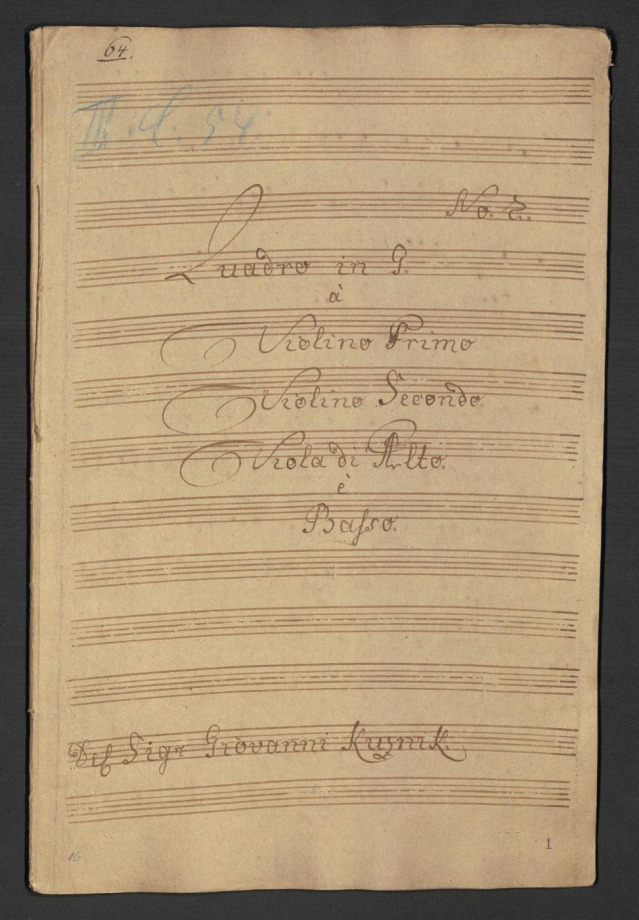 64.
III. d. 54.
No. 2.
Quadro in G.
à
Violino Primo
Violino Secondo
Viola di Alto.
è
Baſso.
Del Sigr Giovanni
1
16